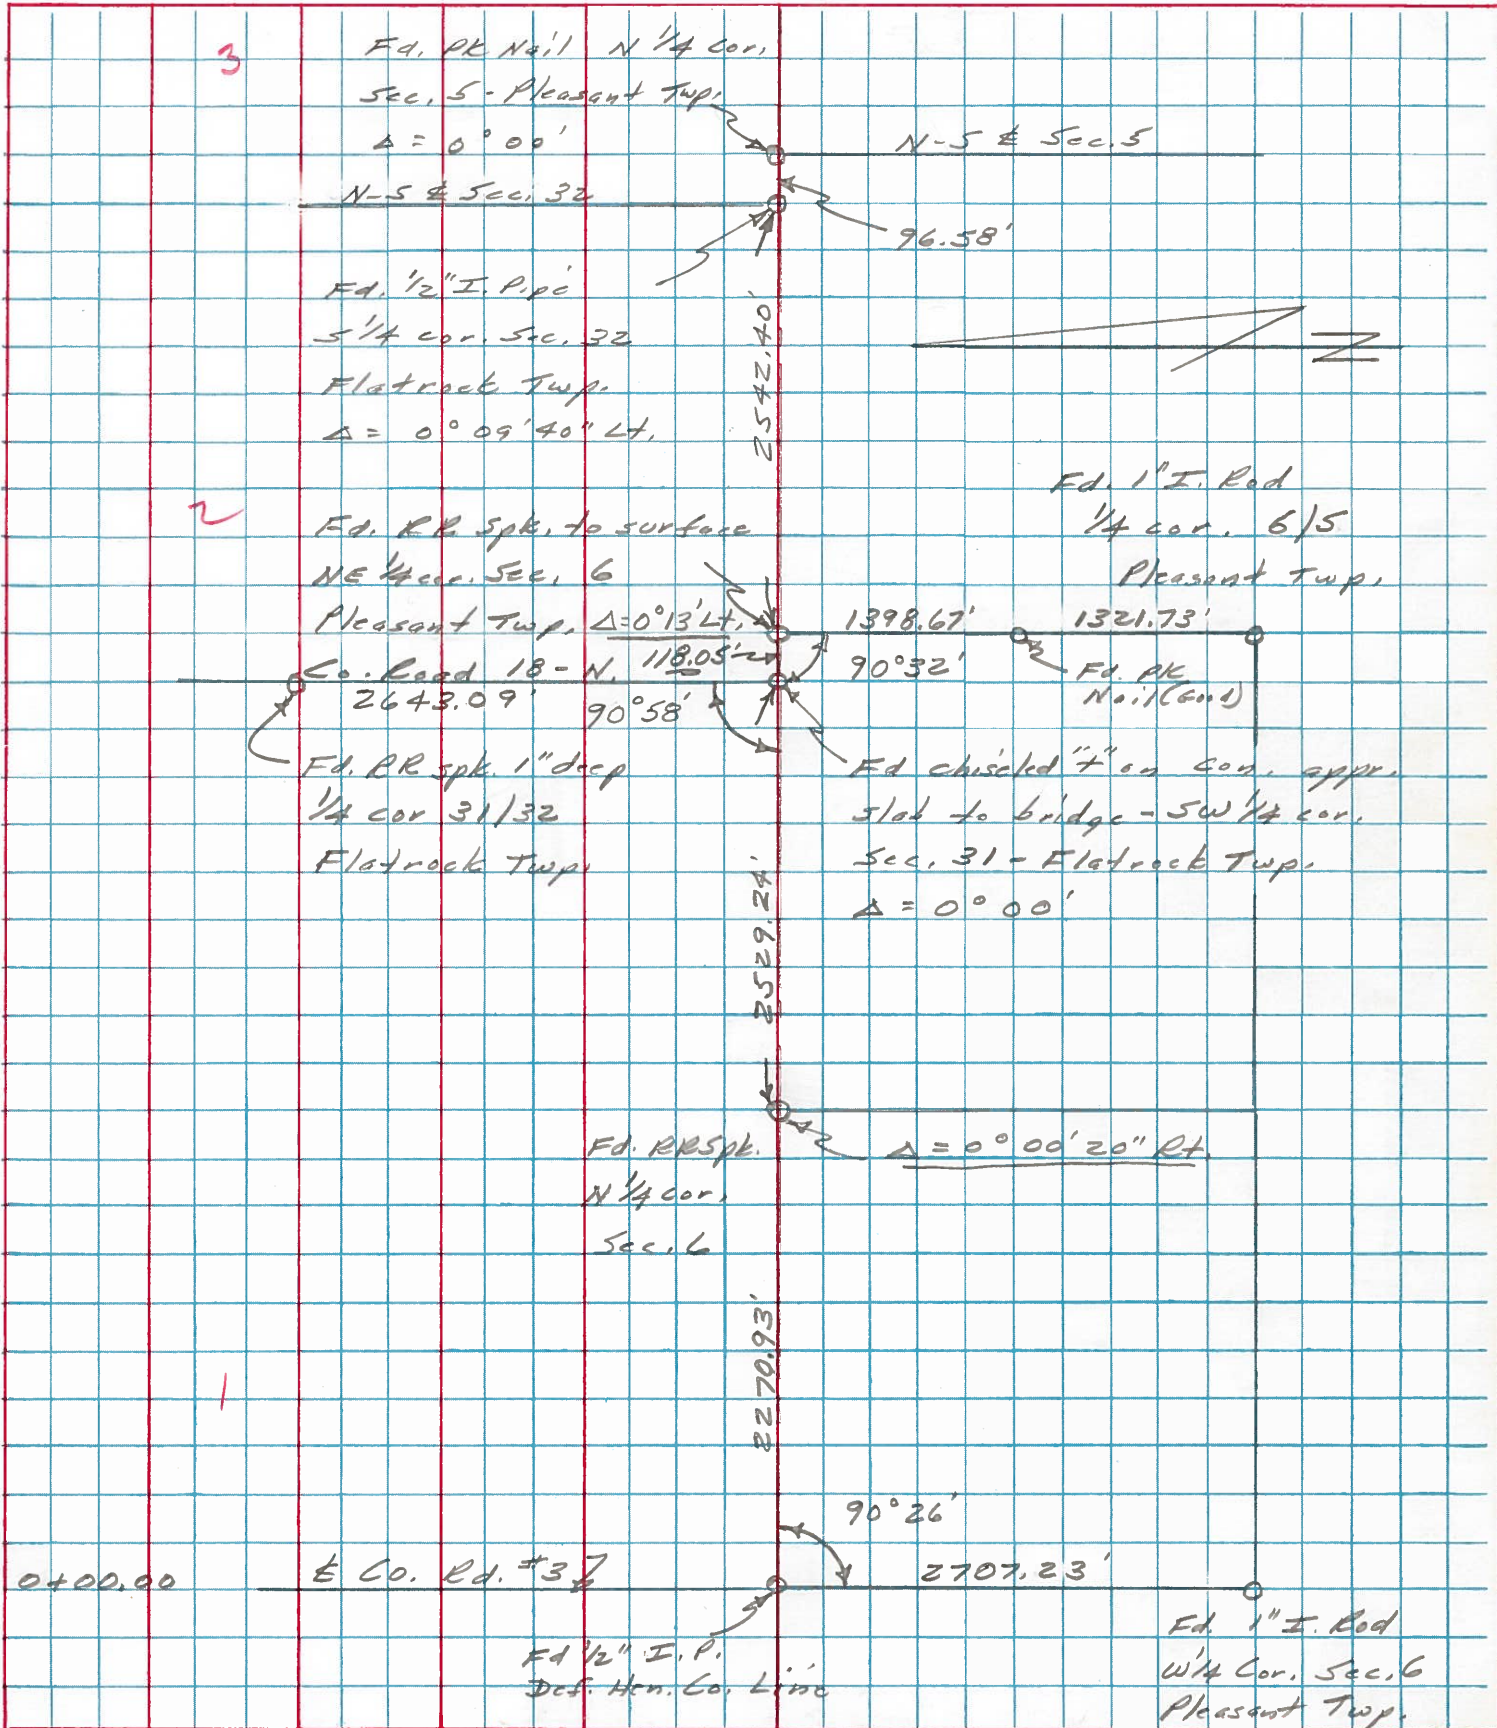 3
Fd. PK Nail N 1/4 cor.
Sec. 5 - Pleasant Twp.
Δ = 0° 00'
N-S ℄ Sec. 5
N-S ℄ Sec. 32
96.58'
Fd. 1/2" I. Pipe
S 1/4 cor. Sec. 32
Flatrock Twp.
Δ = 0° 09' 40" Lt.
2542.40'
N
2
Fd. RR Spk. to surface
NE 1/4 cor. Sec. 6
Pleasant Twp. Δ=0°13' Lt.
118.05'
Fd. 1" I. Rod
1/4 cor. 6/5
Pleasant Twp.
1398.67'
1321.73'
90°32'
Fd. PK
Nail (Good)
Co. Road 18 - N.
2643.09'
90°58'
Fd. RR spk. 1" deep
1/4 cor 31/32
Flatrock Twp.
Fd chiseled "+" on con. appr.
slab to bridge - SW 1/4 cor.
Sec. 31 - Flatrock Twp.
Δ = 0° 00'
2529.24'
Fd. RR Spk.
N 1/4 cor.
Sec. 6
Δ = 0° 00' 20" Rt.
2270.93'
1
90° 26'
0+00.00
℄ Co. Rd. #37
2707.23'
Fd 1/2" I. P.
Def. Hen. Co. Line
Fd. 1" I. Rod
W 1/4 Cor. Sec. 6
Pleasant Twp.